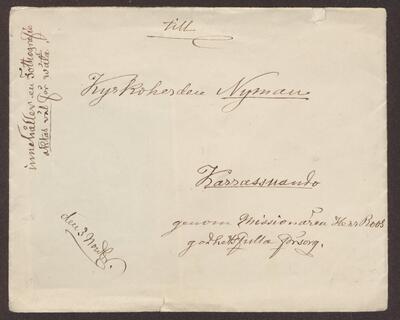 till
Kyrkoherden Nyman
Karrassuando
genom Missionären Herr Roos
godhetsfulla försorg.
innehåller en Fothografie
aktas väl för wäta
den 3 Novb.